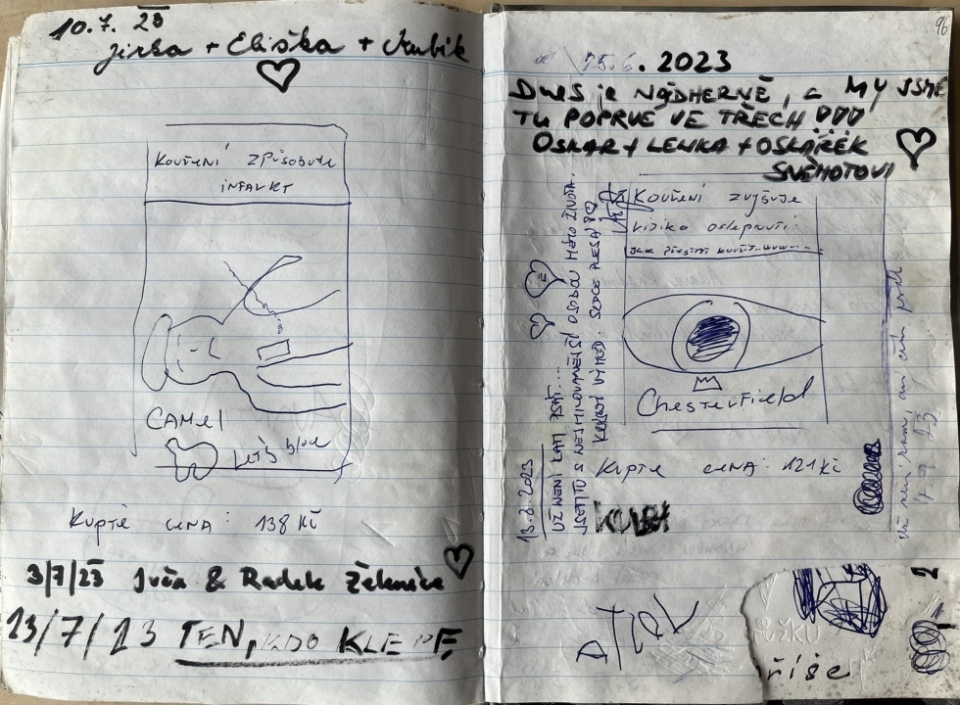 10.7. 23
Jirka + Eliška + Kubík
KOUŘENÍ ZPŮSOBUJE
INFARKT
CAMEL
KUPTE CENA: 138 Kč
3/7/23 Ivča & Radek Želenice
13/7/23 TEN, KDO KLEPE,
96
25.6.2023
DNES je NÁDHERNĚ, a MY JSME
TU POPRVÉ VE TŘECH
OSKAR + LENKA + OSKÁREK
SVĚHOTOVI
KOUŘENÍ zvyšuje
riziko oslepnutí
Jak přestat kouřit
Chesterfield
KUPTE CENA: 121 Kč
13.8.2023
UŽ NENÍ KAM PSÁT....
JSEM TU S NEJMILOVANĚJŠÍ OSOBOU MÉHO ŽIVOTA.
KRÁSNÝ VÝHLED. SRDCE PLESÁ!
říše